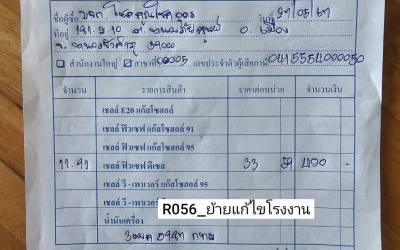 ชื่อผู้ซื้อ บจก. โชคคูณโชค 005 วันที่ 27/05/67
ที่อยู่ 191 ม.10 ต. อ. เมือง
จ. 39000
สำนักงานใหญ่ สาขาที่ 00005 เลขประจำตัวผู้เสียภาษี 0415554000050
จำนวน รายการสินค้า ราคาต่อหน่วย จำนวนเงิน
เชลล์ E20 แก๊สโซฮอล์
เชลล์ ฟิวเซฟ แก๊สโซฮอล์ 91
เชลล์ ฟิวเซฟ แก๊สโซฮอล์ 95
เชลล์ ฟิวเซฟ ดีเซล 33 400 -
เชลล์ วี - เพาเวอร์ แก๊สโซฮอล์ 95
เชลล์ วี - เพาเวอร์
น้ำมันเครื่อง
R056_ย้ายแก้ไขโรงงาน
กทม